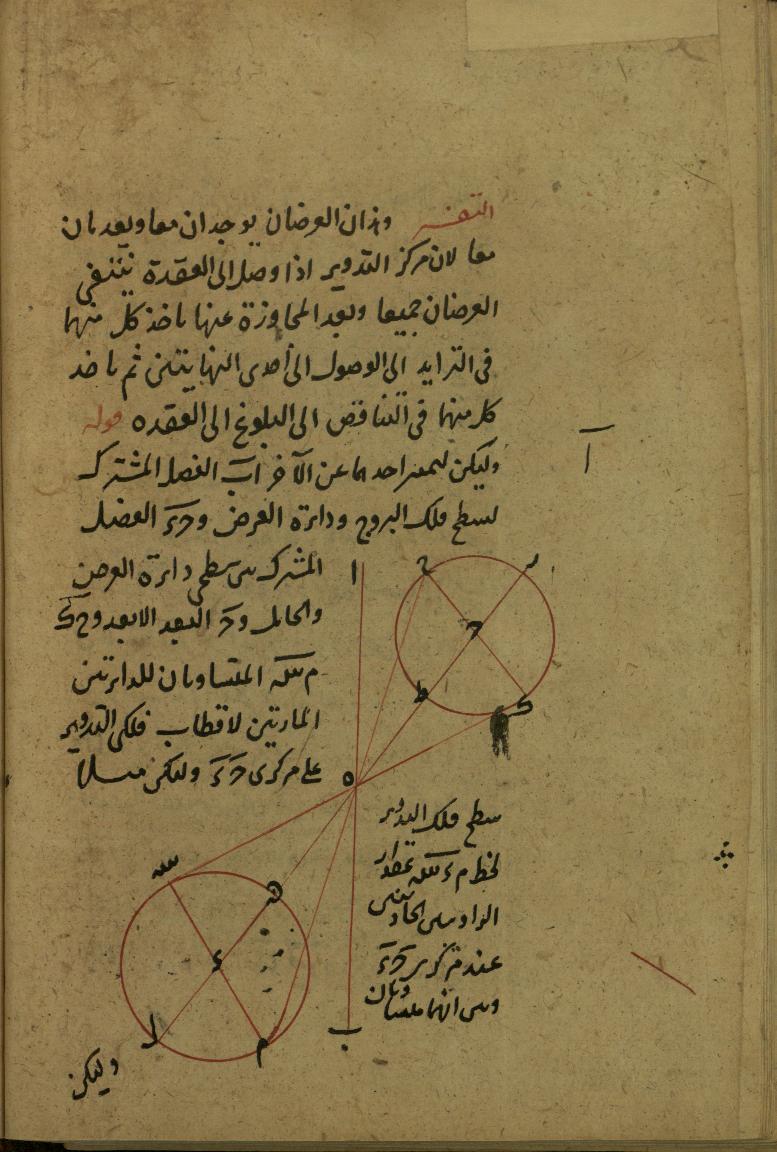 التفسير وهذان العرضان يوجدان معا ويعدمان
معا لان مركز التدوير اذا وصل الى العقدة ينتفى
العرضان جميعا وبعد المجاوزة عنها ياخذ كل منهما
فى التزايد الى الوصول الى احدى النهايتين ثم ياخذ
كل منهما فى التناقص الى البلوغ الى العقده قوله
وليكن لتميز احدهما عن الآخر اب الفصل المشترك
لسطح فلك البروج ودائرة العرض وحء الفصل
المشترك بين سطحى دائرة العرض
والحامل وحر البعد الابعد وح ك
م سه المتساويان للدائرتين
المارتين لاقطاب فلكى التدوير
على مركزى ح ء وليكن ميل
سطح فلك التدوير
لخط م ء سه بمقدار
الزاويتين الحادثتين
عند مركزى ح ء
وبين انهما متساويتان
وليكن
ا
ا
ح
ر
ح
ط
ك
ه
سه
ه
ء
ل
م
ب